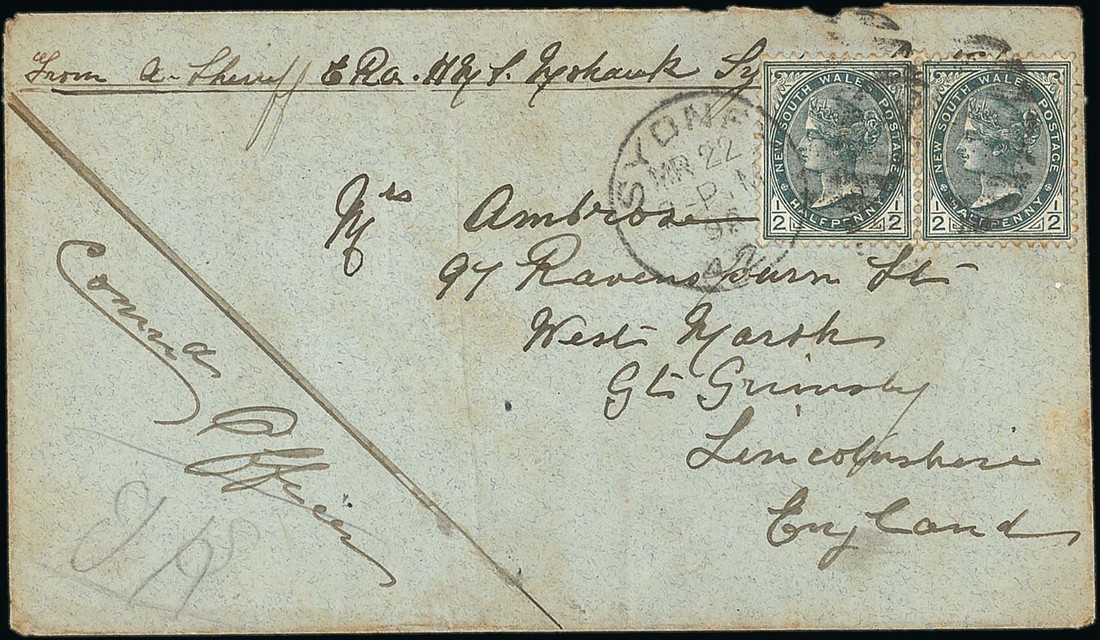 From A. Sherriff E.R.A. H.M.S. Mohawk Sy
NEW SOUTH WALES POSTAGE
1/2 HALFPENNY 1/2
NEW SOUTH WALES POSTAGE
1/2 HALFPENNY 1/2
SYDNEY
MR 22
-P.M
Mrs Ambrose
97 Ravensburn St
West Marsh
Gt Grimsby
Lincolnshire
England
Commdg
Officer